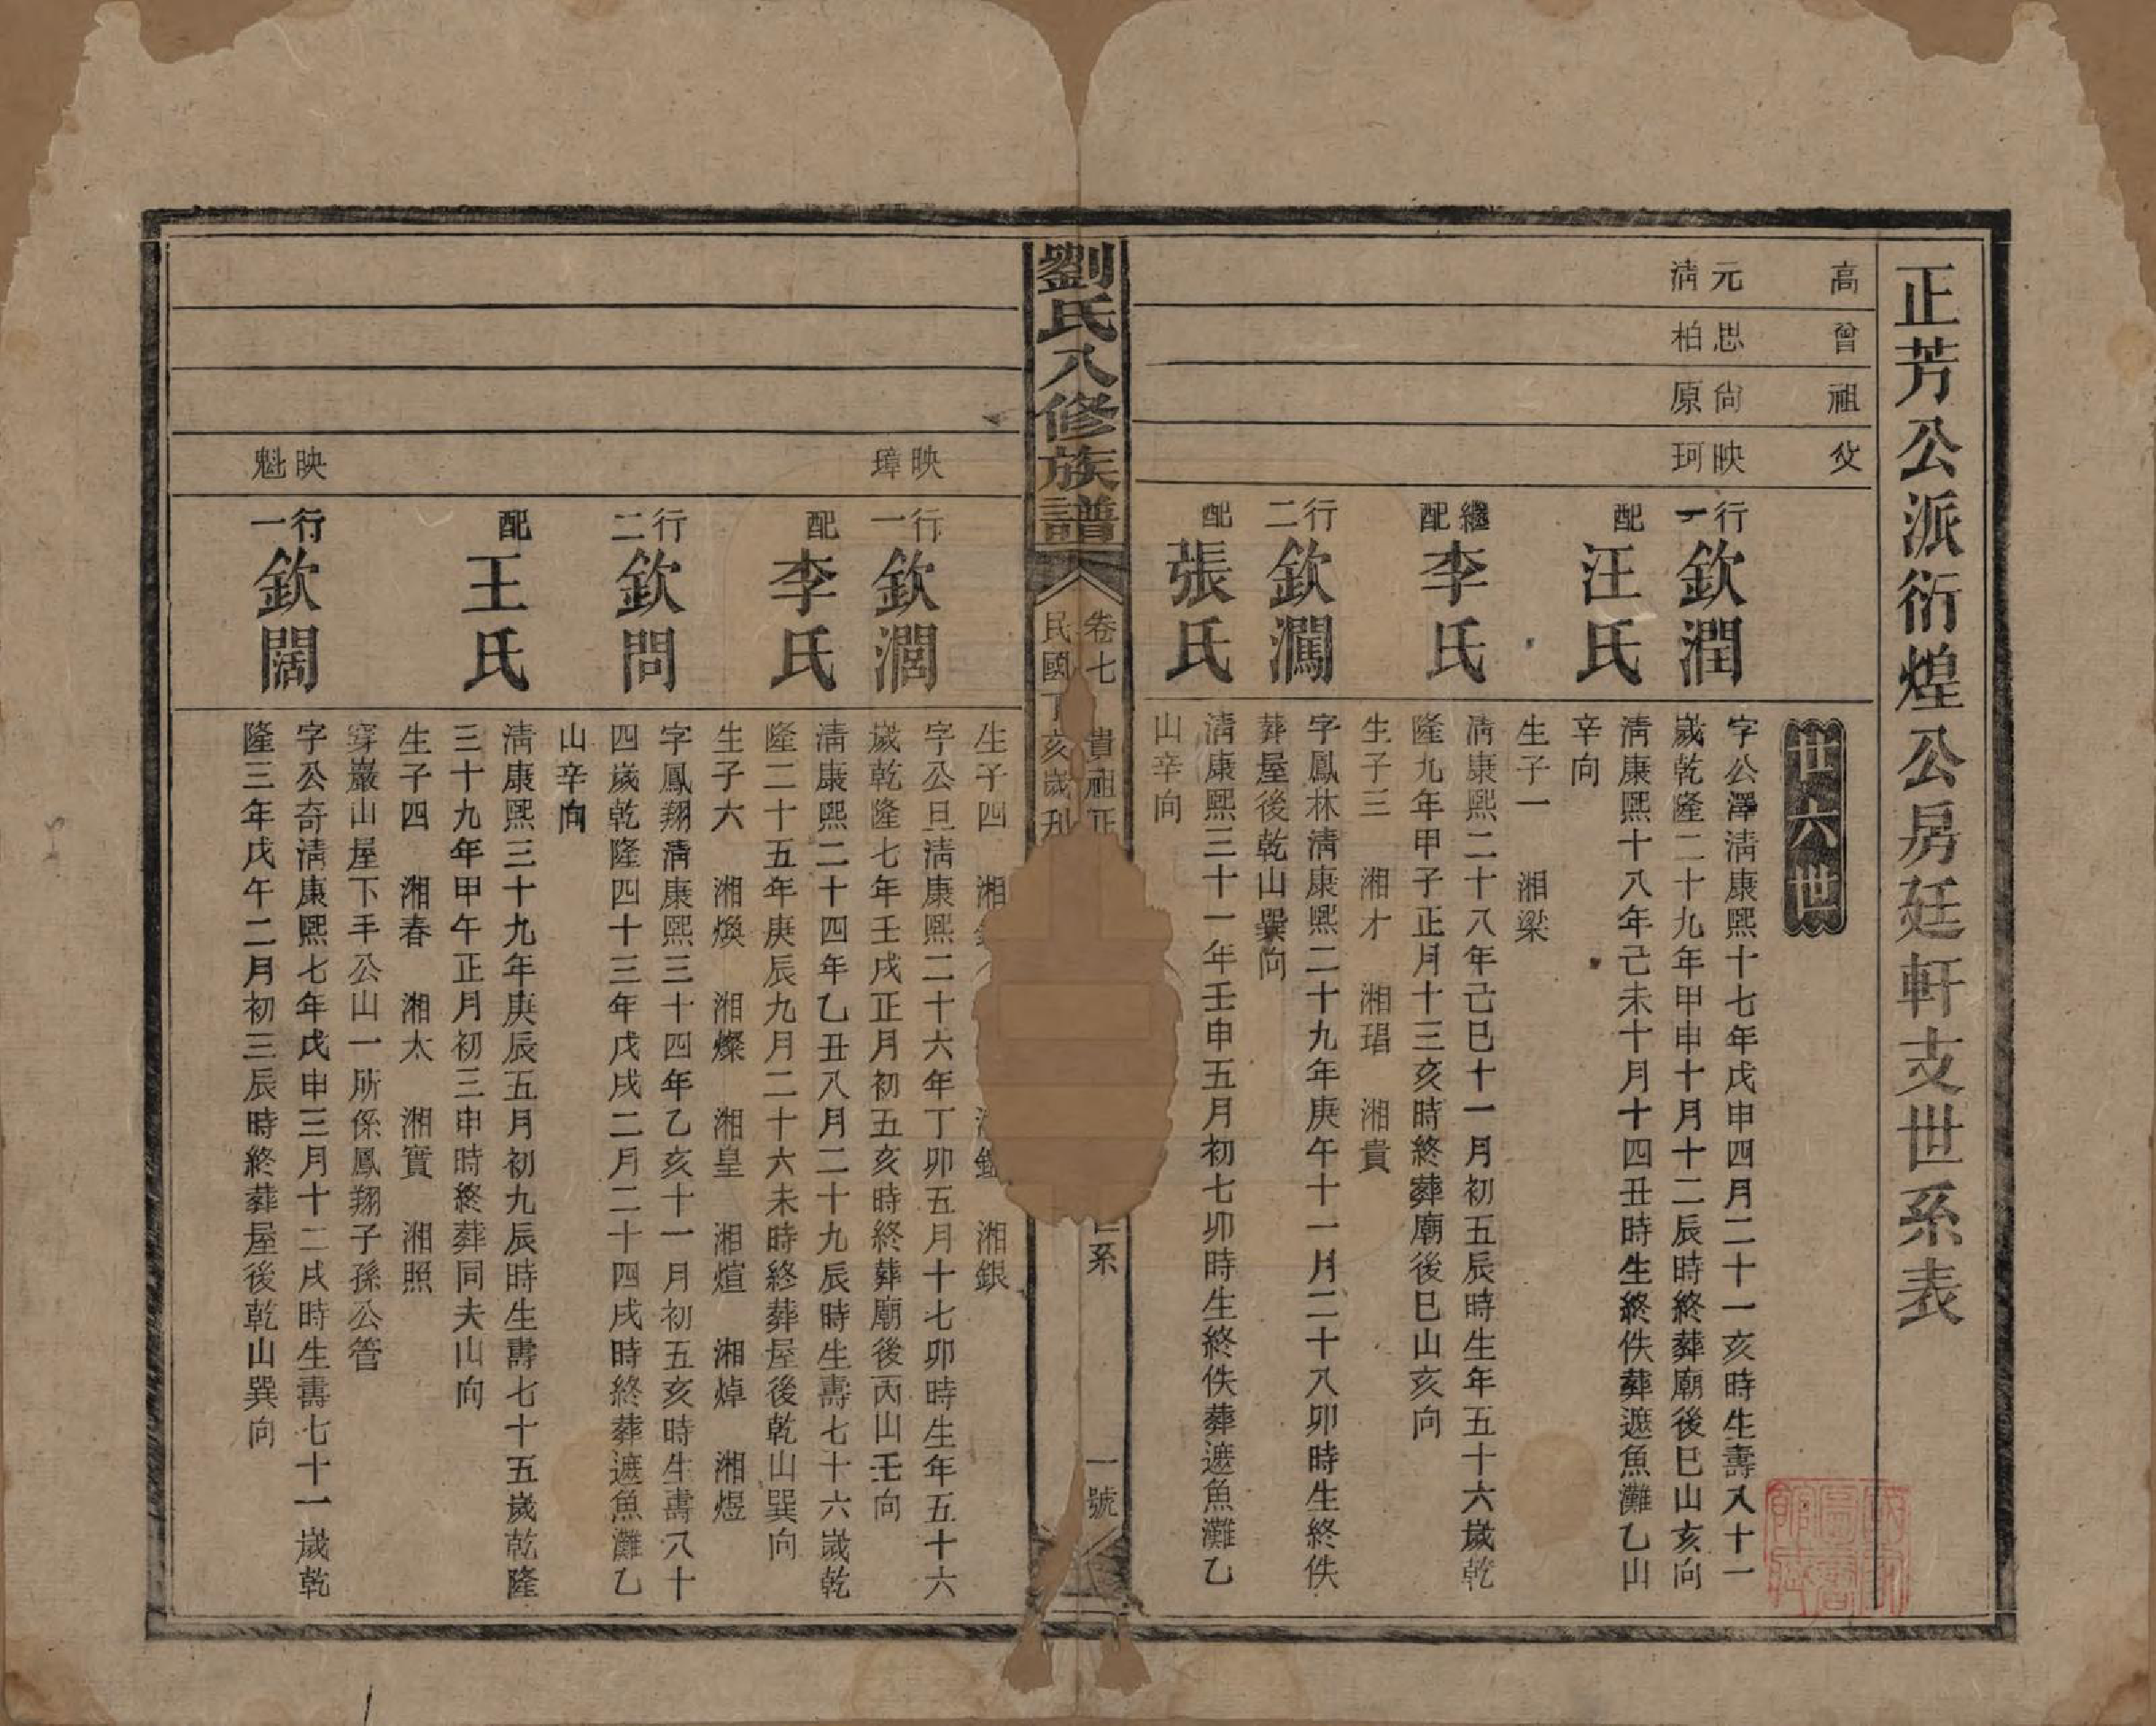 正芳公派衍煌公房廷軒支世系表
高
曾
祖
父
元清
思柏
尙原
映珂
世六世
行一
欽潤
字公澤淸康熙十七年戊申四月二十一亥時生壽八十一
歲乾隆二十九年甲申十月十二辰時終葬廟後巳山亥向
配
汪氏
淸康熙十八年己未十月十四丑時生終佚葬遮魚灘乙山
辛向
生子一　湘梁
繼配
李氏
淸康熙二十八年己巳十一月初五辰時生年五十六歲乾
隆九年甲子正月十三亥時終葬廟後巳山亥向
生子三　湘才　湘琩　湘貴
行二
欽瀾
字鳳林淸康熙二十九年庚午十一月二十八卯時生終佚
葬屋後乾山巽向
配
張氏
淸康熙三十一年壬申五月初七卯時生終佚葬遮魚灘乙
山辛向
劉氏八修族譜
卷七
貴祖正
世系
一號
民國丁亥歲刋
生子四　湘　湘銀
映璋
行一
欽濶
字公旦淸康熙二十六年丁卯五月十七卯時生年五十六
歲乾隆七年壬戌正月初五亥時終葬廟後丙山壬向
配
李氏
淸康熙二十四年乙丑八月二十九辰時生壽七十六歲乾
隆二十五年庚辰九月二十六未時終葬屋後乾山巽向
生子六　湘煥　湘燦　湘皇　湘煊　湘焯　湘煜
行二
欽問
字鳳翔淸康熙三十四年乙亥十一月初五亥時生壽八十
四歲乾隆四十三年戊戌二月二十四戌時終葬遮魚灘乙
山辛向
配
王氏
淸康熙三十九年庚辰五月初九辰時生壽七十五歲乾隆
三十九年甲午正月初三申時終葬同夫山向
生子四　湘春　湘太　湘實　湘照
穿巖山屋下手公山一所係鳳翔子孫公管
映魁
行一
欽闊
字公奇淸康熙七年戊申三月十二戌時生壽七十一歲乾
隆三年戊午二月初三辰時終葬屋後乾山巽向